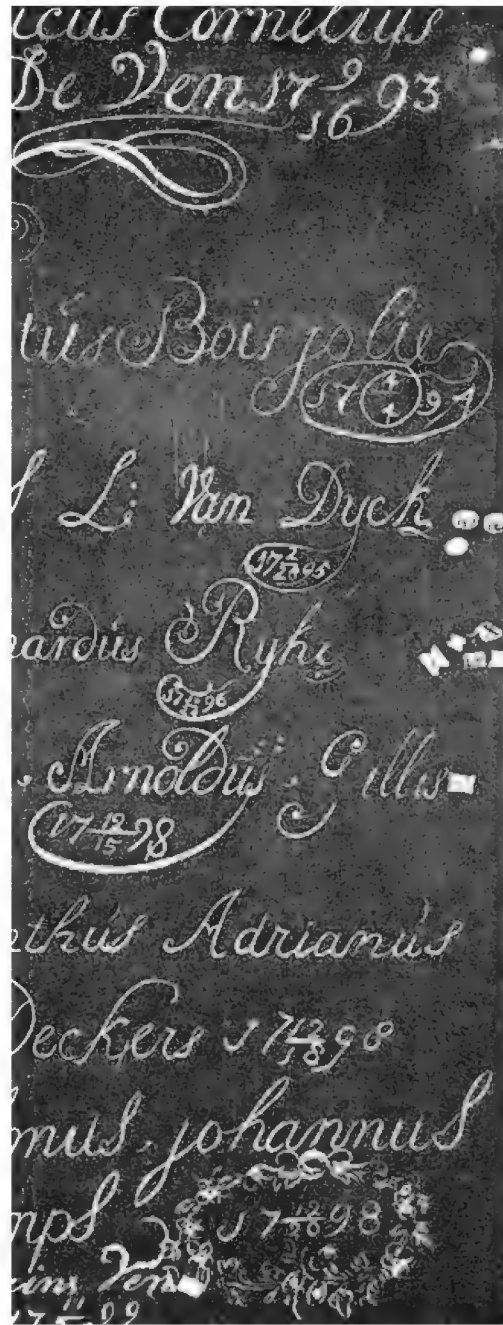 icus Cornelius
De Ven 17 9/16 93
tus Boisjolie
17 1/1 97
L: Van Dyck
17 2/20 95
ardus Ryke
17 96
Arnoldus Gillis
17 12/15 98
thus Adrianus
Deckers 17 12/18 98
mus johannus
mps 17 98
Ven